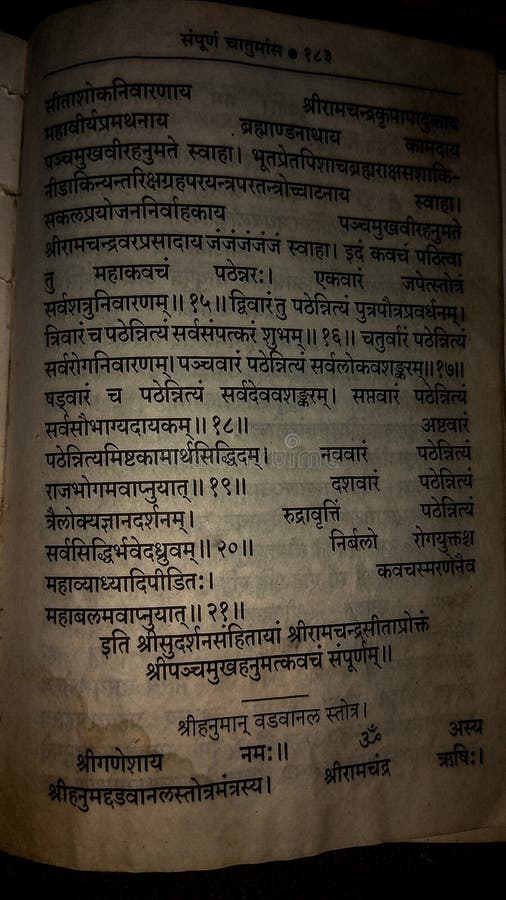 संपूर्ण चातुर्मास ● १८३
सीताशोकनिवारणाय श्रीरामचन्द्रकृपापादुकाय
महावीर्यप्रमथनाय ब्रह्माण्डनाथाय कामदाय
पञ्चमुखवीरहनुमते स्वाहा। भूतप्रेतपिशाचब्रह्मराक्षसशाकि-
नीडाकिन्यन्तरिक्षग्रहपरयन्त्रपरतन्त्रोच्चाटनाय स्वाहा।
सकलप्रयोजननिर्वाहकाय पञ्चमुखवीरहनुमते
श्रीरामचन्द्रवरप्रसादाय जंजंजंजंजं स्वाहा। इदं कवचं पठित्वा
तु महाकवचं पठेन्नरः। एकवारं जपेत्स्तोत्रं
सर्वशत्रुनिवारणम्॥१५॥ द्विवारं तु पठेन्नित्यं पुत्रपौत्रप्रवर्धनम्।
त्रिवारं च पठेन्नित्यं सर्वसंपत्करं शुभम्॥१६॥ चतुर्वारं पठेन्नित्यं
सर्वरोगनिवारणम्। पञ्चवारं पठेन्नित्यं सर्वलोकवशङ्करम्॥१७॥
षड्वारं च पठेन्नित्यं सर्वदेववशङ्करम्। सप्तवारं पठेन्नित्यं
सर्वसौभाग्यदायकम्॥१८॥ अष्टवारं
पठेन्नित्यमिष्टकामार्थसिद्धिदम्। नववारं पठेन्नित्यं
राजभोगमवाप्नुयात्॥१९॥ दशवारं पठेन्नित्यं
त्रैलोक्यज्ञानदर्शनम्। रुद्रावृत्तिं पठेन्नित्यं
सर्वसिद्धिर्भवेद्ध्रुवम्॥२०॥ निर्बलो रोगयुक्तश्च
महाव्याध्यादिपीडितः। कवचस्मरणेनैव
महाबलमवाप्नुयात्॥२१॥
इति श्रीसुदर्शनसंहितायां श्रीरामचन्द्रसीताप्रोक्तं
श्रीपञ्चमुखहनुमत्कवचं संपूर्णम्॥
श्रीहनुमान् वडवानल स्तोत्र।
श्रीगणेशाय नमः॥ ॐ अस्य
श्रीहनुमद्दडवानलस्तोत्रमंत्रस्य। श्रीरामचंद्र ऋषिः।